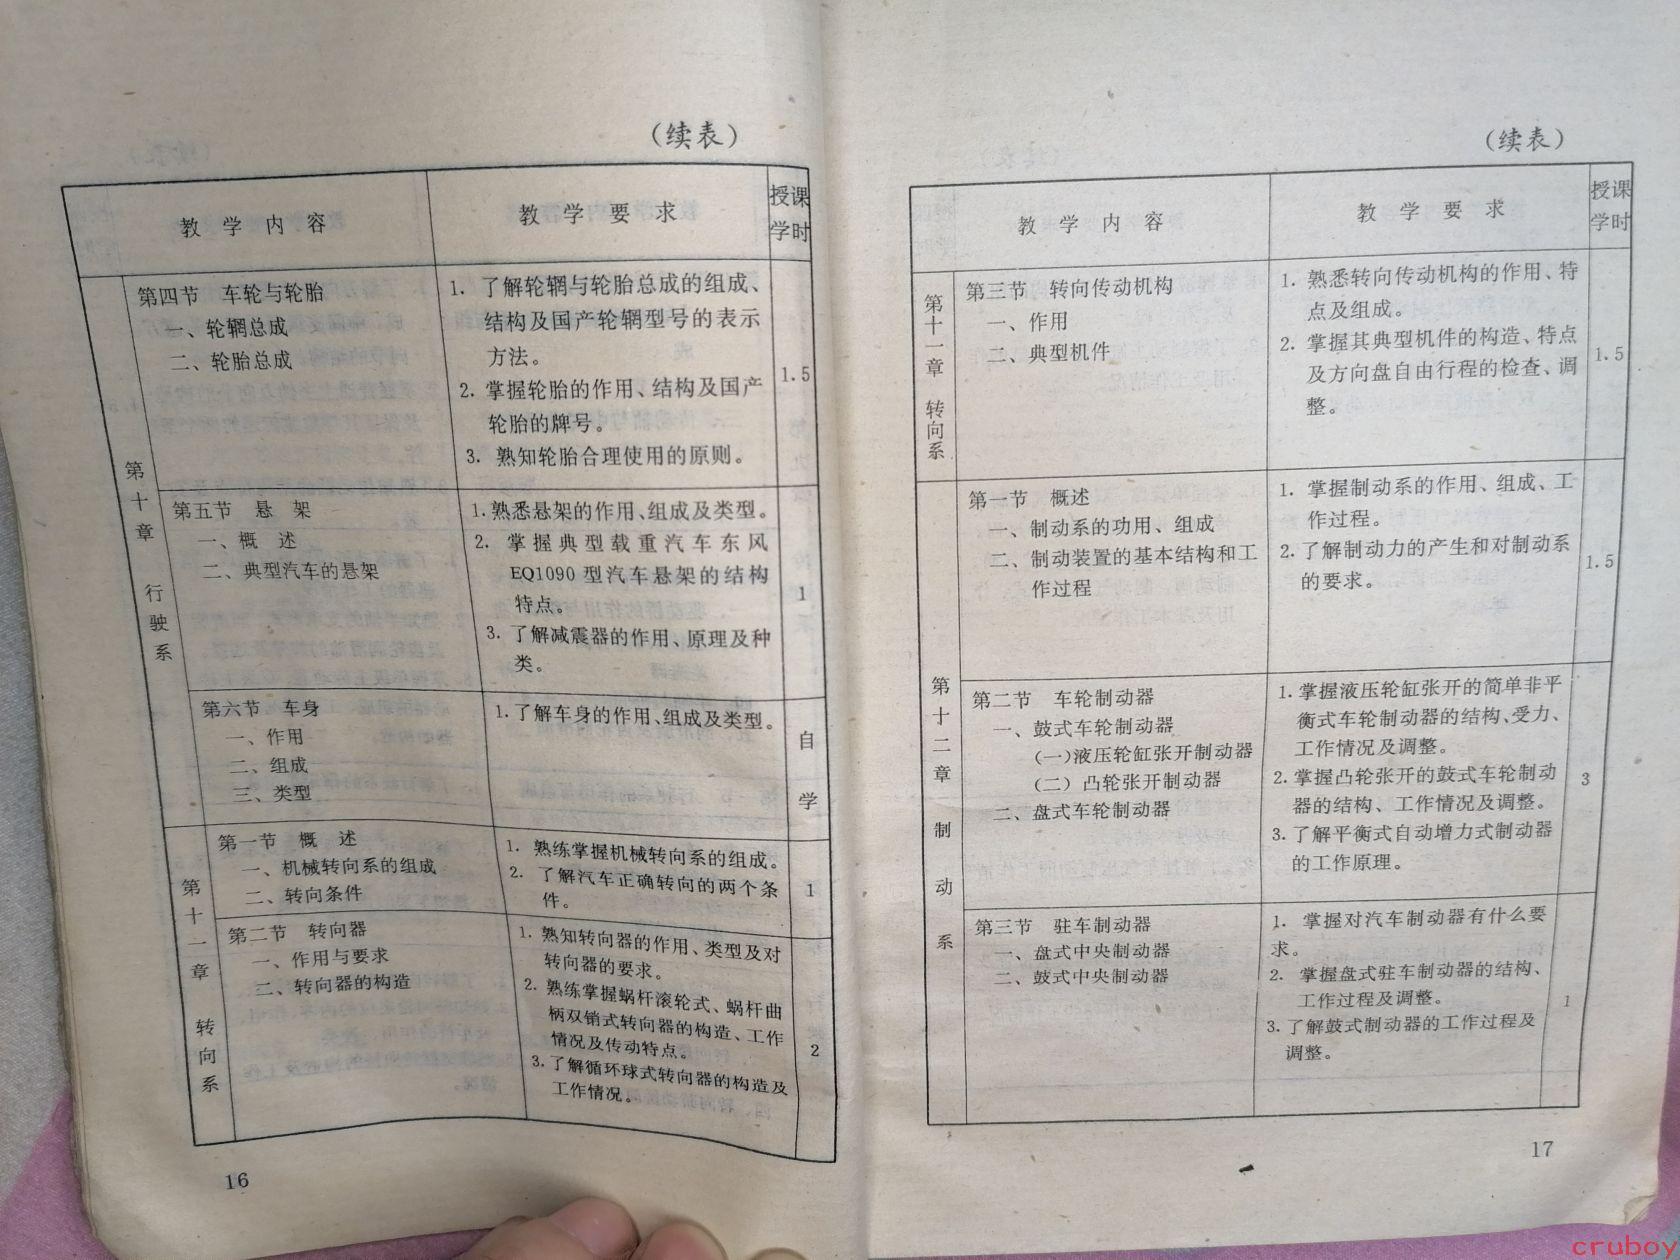 （续表）
教 学 内 容
教 学 要 求
授课
学时
第十章 行驶系
第四节 车轮与轮胎
一、轮辋总成
二、轮胎总成
1. 了解轮辋与轮胎总成的组成、
结构及国产轮辋型号的表示
方法。
2. 掌握轮胎的作用、结构及国产
轮胎的牌号。
3. 熟知轮胎合理使用的原则。
1.5
第五节 悬 架
一、概 述
二、典型汽车的悬架
1. 熟悉悬架的作用、组成及类型。
2. 掌握典型载重汽车东风
EQ1090型汽车悬架的结构
特点。
3. 了解减震器的作用、原理及种
类。
1
第六节 车身
一、作用
二、组成
三、类型
1. 了解车身的作用、组成及类型。
自
学
第十一章 转向系
第一节 概 述
一、机械转向系的组成
二、转向条件
1. 熟练掌握机械转向系的组成。
2. 了解汽车正确转向的两个条
件。
1
第二节 转向器
一、作用与要求
二、转向器的构造
1. 熟知转向器的作用、类型及对
转向器的要求。
2. 熟练掌握蜗杆滚轮式、蜗杆曲
柄双销式转向器的构造、工作
情况及传动特点。
3. 了解循环球式转向器的构造及
工作情况。
2
16
（续表）
教 学 内 容
教 学 要 求
授课
学时
第十一章 转向系
第三节 转向传动机构
一、作用
二、典型机件
1. 熟悉转向传动机构的作用、特
点及组成。
2. 掌握其典型机件的构造、特点
及方向盘自由行程的检查、调
整。
1.5
第十二章 制动系
第一节 概述
一、制动系的功用、组成
二、制动装置的基本结构和工
作过程
1. 掌握制动系的作用、组成、工
作过程。
2. 了解制动力的产生和对制动系
的要求。
1.5
第二节 车轮制动器
一、鼓式车轮制动器
（一）液压轮缸张开制动器
（二）凸轮张开制动器
二、盘式车轮制动器
1. 掌握液压轮缸张开的简单非平
衡式车轮制动器的结构、受力、
工作情况及调整。
2. 掌握凸轮张开的鼓式车轮制动
器的结构、工作情况及调整。
3. 了解平衡式自动增力式制动器
的工作原理。
3
第三节 驻车制动器
一、盘式中央制动器
二、鼓式中央制动器
1. 掌握对汽车制动器有什么要
求。
2. 掌握盘式驻车制动器的结构、
工作过程及调整。
3. 了解鼓式制动器的工作过程及
调整。
1
17
cruboy